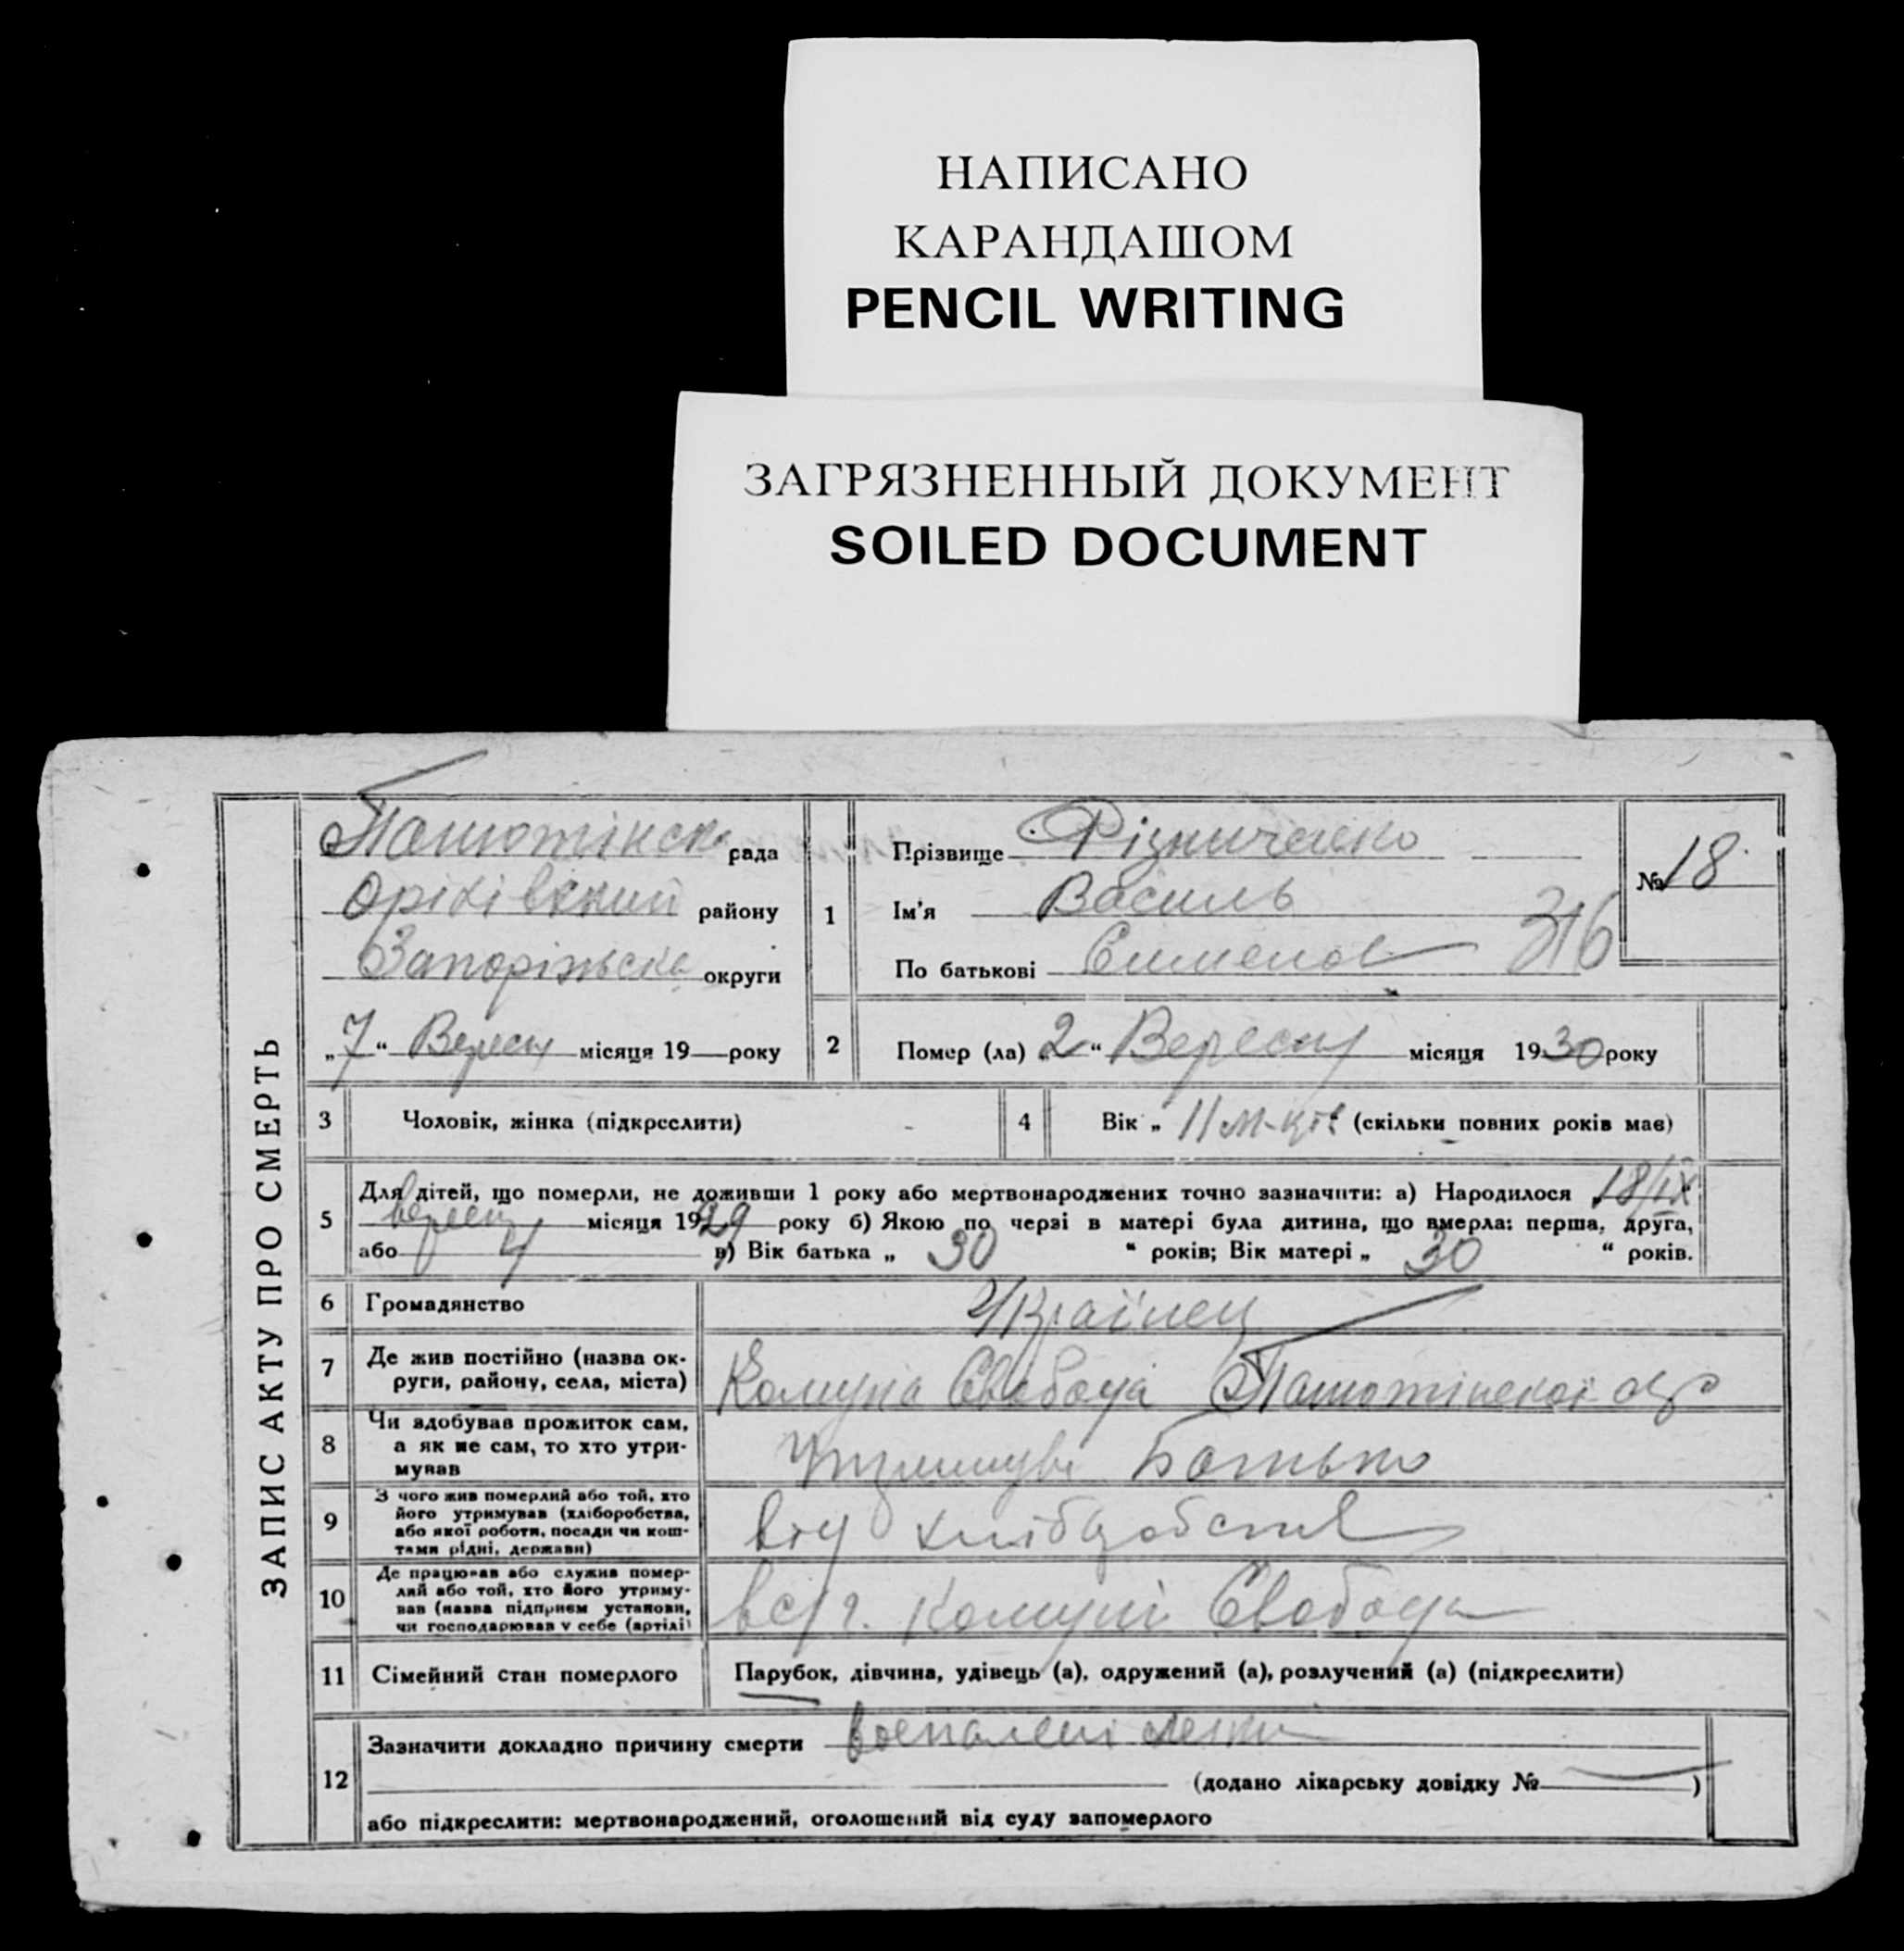 НАПИСАНО
КАРАНДАШОМ
PENCIL WRITING
ЗАГРЯЗНЕННЫЙ ДОКУМЕНТ
SOILED DOCUMENT
ЗАПИС АКТУ ПРО СМЕРТЬ
рада
Оріхівський району
Запоріжська округи
„7“ Вересня місяця 19 року
1
Прізвище Різниченко
Ім'я Василь
По батькові Сименов
316
№ 18
2
Помер (ла) „2“ Вересня місяця 1930 року
3
Чоловік, жінка (підкреслити)
4
Вік „ 11 м-ців (скільки повних років має)
5
Для дітей, що померли, не доживши 1 року або мертвонароджених точно зазначити: а) Народилося „18/IX
вересня місяця 1929 року б) Якою по черзі в матері була дитина, що вмерла: перша, друга,
або 4 в) Вік батька „ 30 “ років; Вік матері „ 30 “ років.
6 Громадянство Українец
7 Де жив постійно (назва ок-
руги, району, села, міста)
Комуна Свобода
8 Чи здобував прожиток сам,
а як не сам, то хто утри-
мував
Утримував Батько
9 З чого жив померлий або той, хто
його утримував (хліборобства,
або якої роботи, посади чи кош-
тами рідні, держави)
від
10 Де працював або служив помер-
лий або той, хто його утриму-
вав (назва підприєм установи,
чи господарював у себе (артілі)
в с/г. комуні Свобода
11 Сімейний стан померлого
Парубок, дівчина, удівець (а), одружений (а), розлучений (а) (підкреслити)
12
Зазначити докладно причину смерти воспалені легких
(додано лікарську довідку № )
або підкреслити: мертвонароджений, оголошений від суду запомерлого